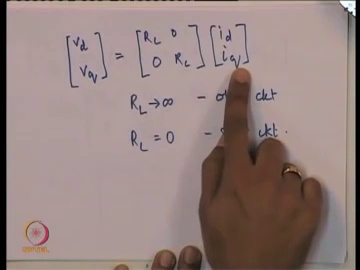 [vd vq] = [RL 0 0 RL] [id iq]
RL → ∞ - ckt
RL = 0 - ckt.
NPTEL